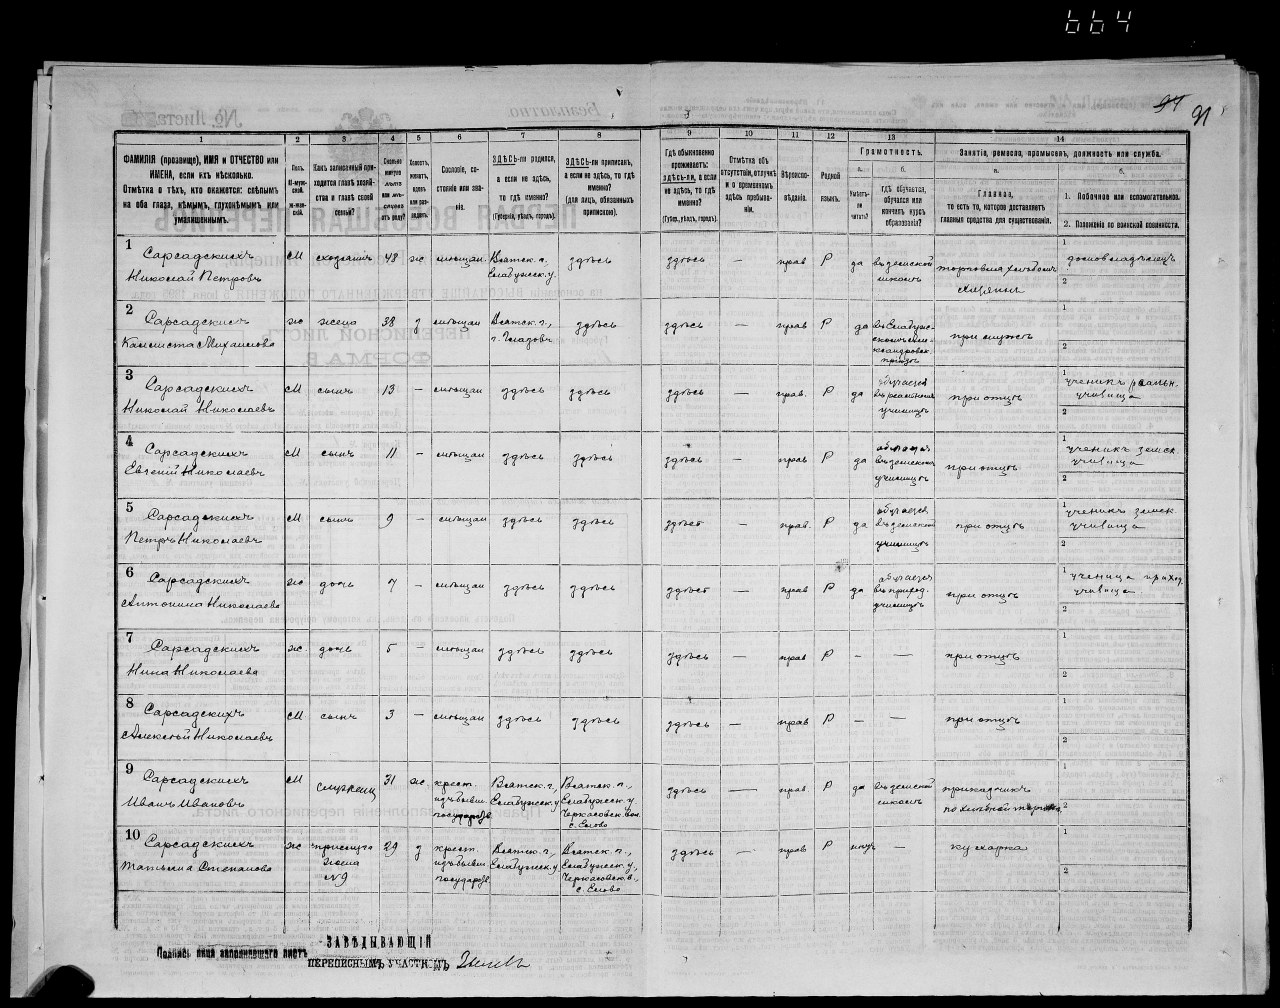 664
97 91
№ Листа
Безплатно
3
1 2 3 4 5 6 7 8 9 10 11 12 13 14
ФАМИЛІЯ (прозвище), ИМЯ и ОТЧЕСТВО или ИМЕНА, если ихъ нѣсколько.
Отмѣтка о тѣхъ, кто окажется: слѣпымъ на оба глаза, нѣмымъ, глухонѣмымъ или умалишеннымъ.
Полъ. М-мужской. ж-женскій.
Какъ записанный приходится главѣ хозяйства и главѣ своей семьи?
Сколько минуло лѣтъ или мѣсяцевъ отъ роду?
Холостъ, женатъ, вдовъ или разведенъ.
Сословіе, состояніе или званіе.
ЗДѢСЬ-ли родился, а если не здѣсь, то гдѣ именно? (Губернія, уѣздъ, городъ).
ЗДѢСЬ-ли приписанъ, а если не здѣсь, то гдѣ именно? (для лицъ, обязанныхъ припискою).
Гдѣ обыкновенно проживаетъ: здѣсь-ли, а если не здѣсь, то гдѣ именно? (Губер., уѣздъ, городъ).
Отмѣтка объ отсутствіи, отлучкѣ и о временномъ здѣсь пребываніи.
Вѣроисповѣданіе.
Родной языкъ.
Грамотность.
а. Умѣетъ-ли читать?
б. гдѣ обучается, обучался или кончилъ курсъ образованія?
Занятіе, ремесло, промыселъ, должность или служба.
а. Главное, то есть то, которое доставляетъ главныя средства для существованія.
б. 1. Побочное или вспомогательное.
2. Положеніе по воинской повинности.
1 Сарсадскихъ Николай Петровъ М хозяинъ 48 ж мѣщан. Вятск. г. Елабужск. у. здѣсь здѣсь — прав Р да въ земской школѣ торговля хлѣбомъ 1 домовладѣлецъ 2
2 Сарсадскихъ Михаилова ж жена 38 мѣщан Вятск. г., г. Глазовъ здѣсь здѣсь — прав Р да при мужѣ 1 2
3 Сарсадскихъ Николай Николаевъ М сынъ 13 — мѣщан здѣсь здѣсь здѣсь — прав. Р да обучается въ реальном училищѣ при отцѣ 1 ученикъ реальн. училища 2
4 Сарсадскихъ Евгеній Николаевъ М сынъ 11 — мѣщан здѣсь здѣсь здѣсь — прав Р да обучается въ земском училищѣ при отцѣ 1 ученикъ земск. училища 2
5 Сарсадскихъ Петръ Николаевъ М сынъ 9 — мѣщан здѣсь здѣсь здѣсь — прав. Р да обучается въ земской училищѣ при отцѣ 1 ученикъ земск. училища 2
6 Сарсадскихъ Антонина Николаева ж дочь 7 — мѣщан здѣсь здѣсь здѣсь — прав Р да обучается въ приход. училищѣ при отцѣ 1 ученица приход. училища 2
7 Сарсадскихъ Нина Николаева ж. дочь 5 — мѣщан здѣсь здѣсь здѣсь — прав Р — — при отцѣ 1 2
8 Сарсадскихъ Алексѣй Николаевъ М сынъ 3 — мѣщан здѣсь здѣсь здѣсь — прав Р — — при отцѣ 1 2
9 Сарсадскихъ Иванъ Ивановъ М 31 ж. крест. изъ бывш. государств. Вятск. г., Елабужск. у. Вятск. г., Елабужск. у. Черкасовск. вол. с. Елово здѣсь — прав. Р да въ земской школѣ приказчикъ по хлѣбной торговлѣ 1 2
10 Сарсадскихъ Татьяна Степанова ж прислуга жена №9 29 крест. изъ бывш. государств. Вятск. г., Елабужск. у. Вятск. г., Елабужск. у., Черкасовск. в., с. Елово здѣсь — прав Р — кухарка 1 2
Подпись лица заполнившаго листъ
ЗАВѢДЫВАЮЩІЙ
ПЕРЕПИСНЫМЪ УЧАСТКОМЪ